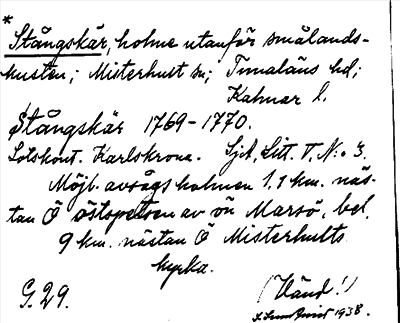 *
Stångskär, holme utanför smålands-
kusten; Misterhult sn; Tunaläns hd;
Kalmar l.
Stångskär 1769-1770.
Lotskont. Karlskrona. Sjök. Litt. T. N:o 3.
Möjl. avsågs holmen 1.1 km. näs-
tan Ö östspetsen av ön Marsö, bel.
9 km. nästan Ö Misterhults
kyrka.
G. 29. (Vänd!)
1938.